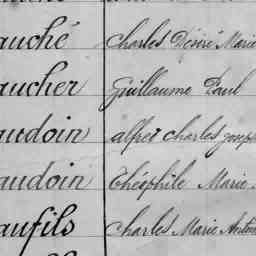 auché Charles Désiré Marie
aucher Guillaume Paul
audoin alfret Charles
audoin Théophile Marie
aufils Charles Marie